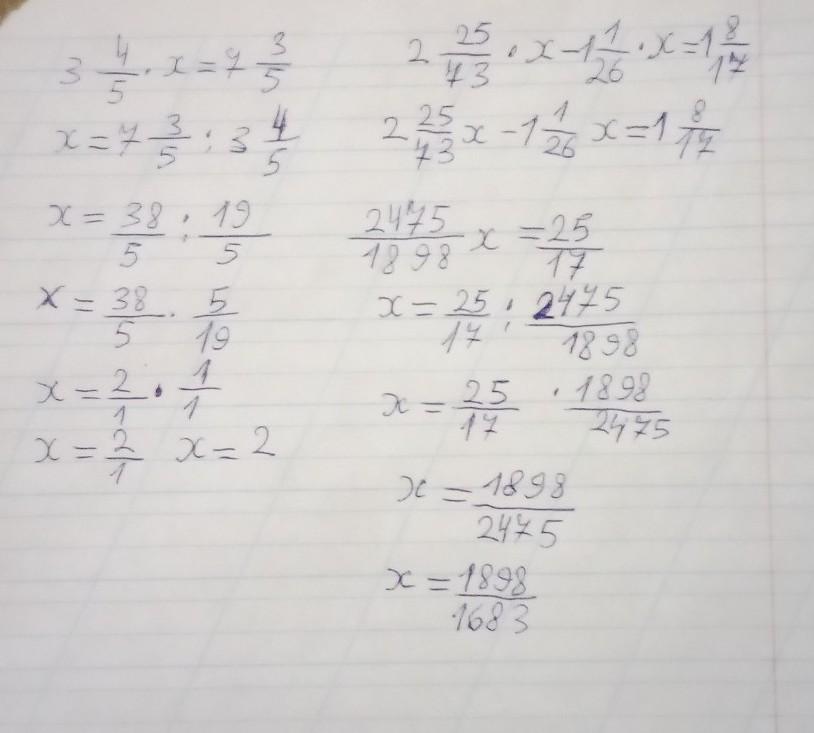 3 4/5 · x = 7 3/5
x = 7 3/5 : 3 4/5
x = 38/5 : 19/5
x = 38/5 · 5/19
x = 2/1 · 1/1
x = 2/1 x = 2
2 25/73 · x - 1 1/26 · x = 1 8/17
2 25/73 x - 1 1/26 x = 1 8/17
2475/1898 x = 25/17
x = 25/17 : 2475/1898
x = 25/17 · 1898/2475
x = 1898/2475
x = 1898/1683